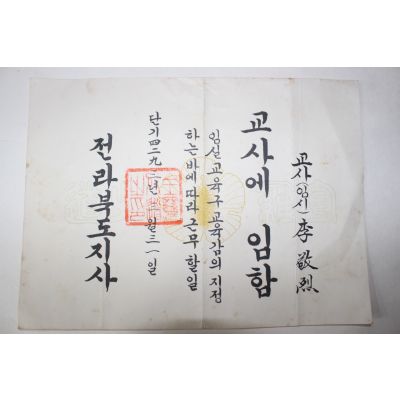 교사(임시) 李敬烈
교사에 임함
임실교육구교육감의 지정
하는바에 따라 근무할일
단기四二九二년三월三一일
전라북도지사